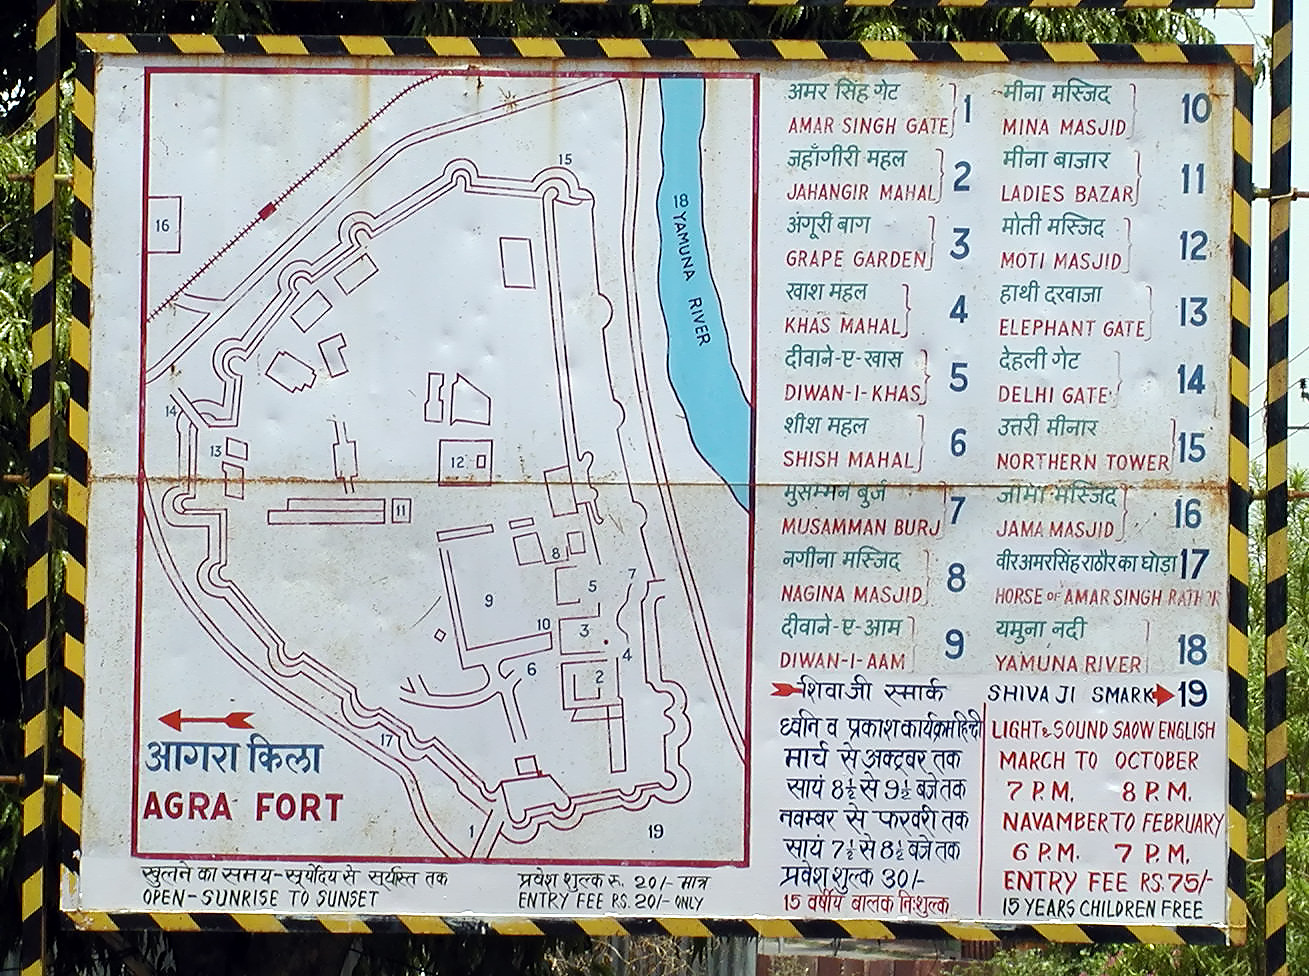 16
15
18 YAMUNA RIVER
14
13
12
11
8
9
5
7
10
3
4
6
2
17
1
19
आगरा किला
AGRA FORT
खुलने का समय-सूर्योदय से सूर्यास्त तक
OPEN-SUNRISE TO SUNSET
प्रवेश शुल्क रु. 20/- मात्र
ENTRY FEE RS. 20/- ONLY
अमर सिंह गेट
AMAR SINGH GATE 1
जहाँगीरी महल
JAHANGIR MAHAL 2
अंगूरी बाग
GRAPE GARDEN 3
खाश महल
KHAS MAHAL 4
दीवाने-ए-खास
DIWAN-I-KHAS 5
शीश महल
SHISH MAHAL 6
मुसम्मन बुर्ज
MUSAMMAN BURJ 7
नगीना मस्जिद
NAGINA MASJID 8
दीवाने-ए-आम
DIWAN-I-AAM 9
मीना मस्जिद
MINA MASJID 10
मीना बाजार
LADIES BAZAR 11
मोती मस्जिद
MOTI MASJID 12
हाथी दरवाजा
ELEPHANT GATE 13
देहली गेट
DELHI GATE 14
उत्तरी मीनार
NORTHERN TOWER 15
जामा मस्जिद
JAMA MASJID 16
वीर अमरसिंह राठौर का घोड़ा 17
HORSE OF AMAR SINGH RATHOR
यमुना नदी
YAMUNA RIVER 18
शिवाजी स्मार्क SHIVAJI SMARK 19
ध्वनि व प्रकाश कार्यक्रम हिन्दी
मार्च से अक्टूबर तक
सायं 8½ से 9½ बजे तक
नवम्बर से फरवरी तक
सायं 7½ से 8½ बजे तक
प्रवेश शुल्क 30/-
15 वर्षीय बालक निःशुल्क
LIGHT & SOUND SAOW ENGLISH
MARCH TO OCTOBER
7 P.M. 8 P.M.
NAVAMBER TO FEBRUARY
6 P.M. 7 P.M.
ENTRY FEE RS.75/-
15 YEARS CHILDREN FREE